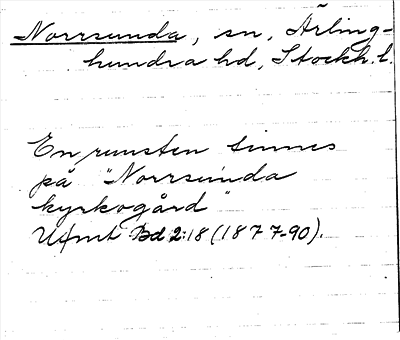 Norrsunda, sn, Ärling-
hundra hd, Stockh. l.
En runsten finnes
på "Norrsunda
kyrkogård"
Ufmt Bd 2:18 (1877-90).